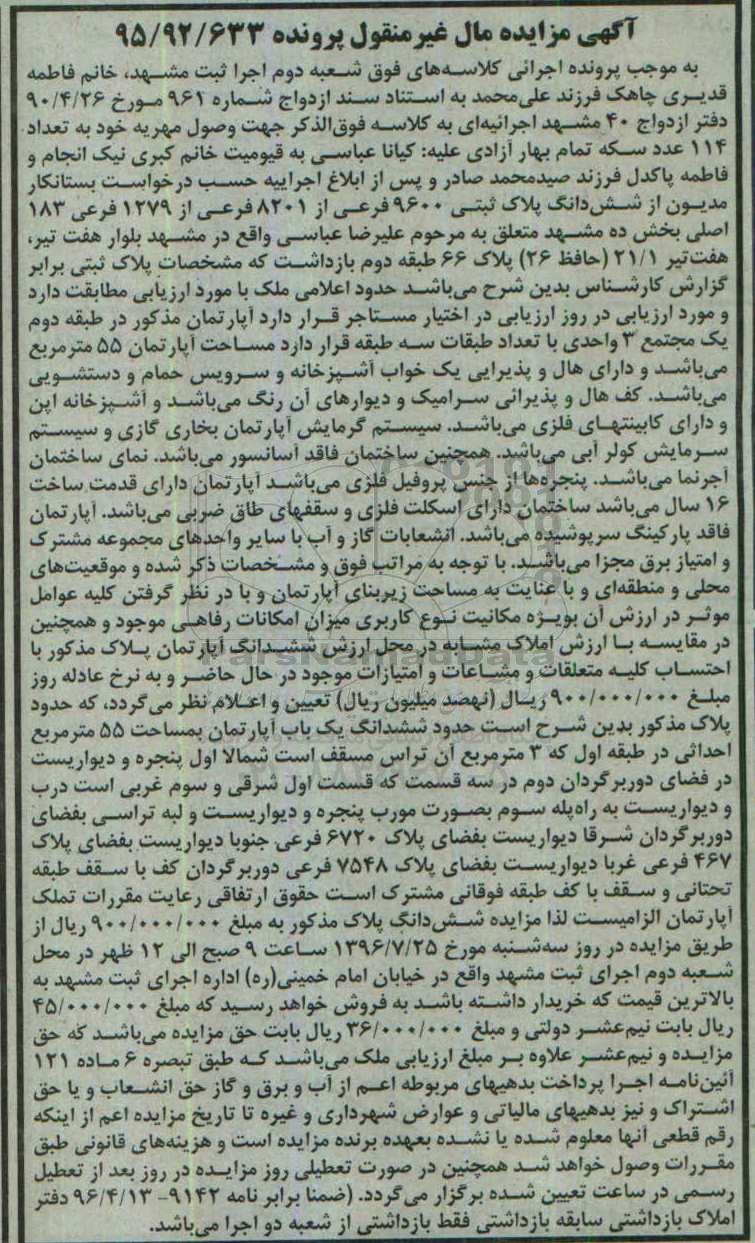 آگهی مزایده مال غیرمنقول پرونده ۹۵/۹۲/۶۳۳
به موجب پرونده اجرائی کلاسه‌های فوق شعبه دوم اجرا ثبت مشهد، خانم فاطمه
قدیری چاهک فرزند علی‌محمد به استناد سند ازدواج شماره ۹۶۱ مورخ ۹۰/۴/۲۶
دفتر ازدواج ۴۰ مشهد اجرائیه‌ای به کلاسه فوق‌الذکر جهت وصول مهریه خود به تعداد
۱۱۴ عدد سکه تمام بهار آزادی علیه: کیانا عباسی به قیومیت خانم کبری نیک انجام و
فاطمه پاکدل فرزند صیدمحمد صادر و پس از ابلاغ اجراییه حسب درخواست بستانکار
مدیون از شش‌دانگ پلاک ثبتی ۹۶۰۰ فرعی از ۸۲۰۱ فرعی از ۱۲۷۹ فرعی ۱۸۳
اصلی بخش ده مشهد متعلق به مرحوم علیرضا عباسی واقع در مشهد بلوار هفت تیر،
هفت‌تیر ۲۱/۱ (حافظ ۲۶) پلاک ۶۶ طبقه دوم بازداشت که مشخصات پلاک ثبتی برابر
گزارش کارشناس بدین شرح می‌باشد حدود اعلامی ملک با مورد ارزیابی مطابقت دارد
و مورد ارزیابی در روز ارزیابی در اختیار مستاجر قرار دارد آپارتمان مذکور در طبقه دوم
یک مجتمع ۳ واحدی با تعداد طبقات سه طبقه قرار دارد مساحت آپارتمان ۵۵ مترمربع
می‌باشد و دارای هال و پذیرایی یک خواب آشپزخانه و سرویس حمام و دستشویی
می‌باشد. کف هال و پذیرائی سرامیک و دیوارهای آن رنگ می‌باشد و آشپزخانه اپن
و دارای کابینتهای فلزی می‌باشد. سیستم گرمایش آپارتمان بخاری گازی و سیستم
سرمایش کولر آبی می‌باشد. همچنین ساختمان فاقد آسانسور می‌باشد. نمای ساختمان
آجرنما می‌باشد. پنجره‌ها از جنس پروفیل فلزی می‌باشد آپارتمان دارای قدمت ساخت
۱۶ سال می‌باشد ساختمان دارای اسکلت فلزی و سقفهای طاق ضربی می‌باشد. آپارتمان
فاقد پارکینگ سرپوشیده می‌باشد. انشعابات گاز و آب با سایر واحدهای مجموعه مشترک
و امتیاز برق مجزا می‌باشد. با توجه به مراتب فوق و مشخصات ذکر شده و موقعیت‌های
محلی و منطقه‌ای و با عنایت به مساحت زیربنای آپارتمان و با در نظر گرفتن کلیه عوامل
موثر در ارزش آن بویژه مکانیت نوع کاربری میزان امکانات رفاهی موجود و همچنین
در مقایسه با ارزش املاک مشابه در محل ارزش ششدانگ آپارتمان پلاک مذکور با
احتساب کلیه متعلقات و مشاعات و امتیازات موجود در حال حاضر و به نرخ عادله روز
مبلغ ۹۰۰/۰۰۰/۰۰۰ ریال (نهصد میلیون ریال) تعیین و اعلام نظر می‌گردد، که حدود
پلاک مذکور بدین شرح است حدود ششدانگ یک باب آپارتمان بمساحت ۵۵ مترمربع
احداثی در طبقه اول که ۳ مترمربع آن تراس مسقف است شمالا اول پنجره و دیواریست
در فضای دوربرگردان دوم در سه قسمت که قسمت اول شرقی و سوم غربی است درب
و دیواریست به راه‌پله سوم بصورت مورب پنجره و دیواریست و لبه تراسی بفضای
دوربرگردان شرقا دیواریست بفضای پلاک ۶۷۲۰ فرعی جنوبا دیواریست بفضای پلاک
۴۶۷ فرعی غربا دیواریست بفضای پلاک ۷۵۴۸ فرعی دوربرگردان کف با سقف طبقه
تحتانی و سقف با کف طبقه فوقانی مشترک است حقوق ارتفاقی رعایت مقررات تملک
آپارتمان الزامیست لذا مزایده شش‌دانگ پلاک مذکور به مبلغ ۹۰۰/۰۰۰/۰۰۰ ریال از
طریق مزایده در روز سه‌شنبه مورخ ۱۳۹۶/۷/۲۵ ساعت ۹ صبح الی ۱۲ ظهر در محل
شعبه دوم اجرای ثبت مشهد واقع در خیابان امام خمینی(ره) اداره اجرای ثبت مشهد به
بالاترین قیمت که خریدار داشته باشد به فروش خواهد رسید که مبلغ ۴۵/۰۰۰/۰۰۰
ریال بابت نیم‌عشر دولتی و مبلغ ۳۶/۰۰۰/۰۰۰ ریال بابت حق مزایده می‌باشد که حق
مزایده و نیم‌عشر علاوه بر مبلغ ارزیابی ملک می‌باشد که طبق تبصره ۶ ماده ۱۲۱
آئین‌نامه اجرا پرداخت بدهیهای مربوطه اعم از آب و برق و گاز حق انشعاب و یا حق
اشتراک و نیز بدهیهای مالیاتی و عوارض شهرداری و غیره تا تاریخ مزایده اعم از اینکه
رقم قطعی آنها معلوم شده یا نشده بعهده برنده مزایده است و هزینه‌های قانونی طبق
مقررات وصول خواهد شد همچنین در صورت تعطیلی روز مزایده در روز بعد از تعطیل
رسمی در ساعت تعیین شده برگزار می‌گردد. (ضمنا برابر نامه ۹۱۴۲- ۹۶/۴/۱۳ دفتر
املاک بازداشتی سابقه بازداشتی فقط بازداشتی از شعبه دو اجرا می‌باشد.